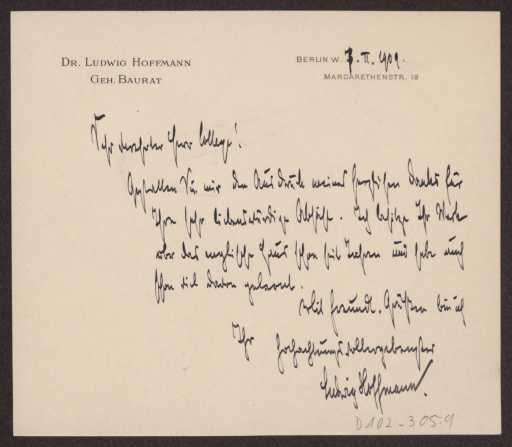 DR. LUDWIG HOFFMANN
GEH. BAURAT
BERLIN W. 7. II. 1909.
MARGARETHENSTR. 18
Sehr verehrter Herr College!
Gestatten Sie mir den Ausdruck meines herzlichen Danks für
Ihre sehr liebenswürdige Absicht. Ich besitze Ihr Werk
über das englische Haus schon seit Jahren und habe auch
schon viel davon gelernt.
Mit freundl. Grüßen bin ich
Ihr hochachtungsvollergebenster
Ludwig Hoffmann.
D102-3059